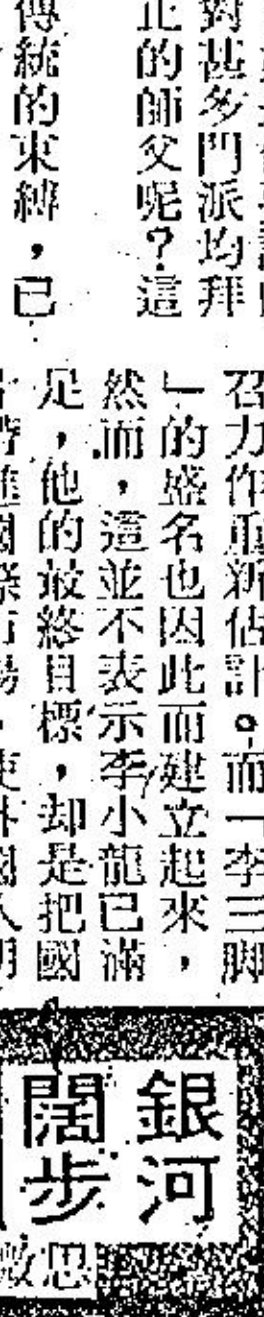 對甚多門派均拜
正的師父呢？這
傳統的束縛，已
召力作重新估計。而「李三脚
」的盛名也因此而建立起來，
然而，這並不表示李小龍已滿
足，他的最終目標，却是把國
銀河
闊步
思敏